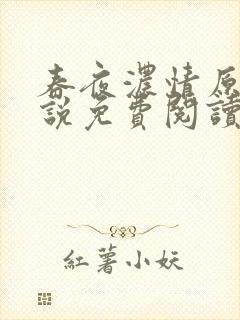 春夜濃情原
說免費閱讀
紅薯小妖